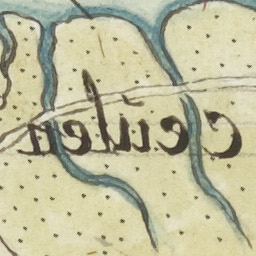 ceülen